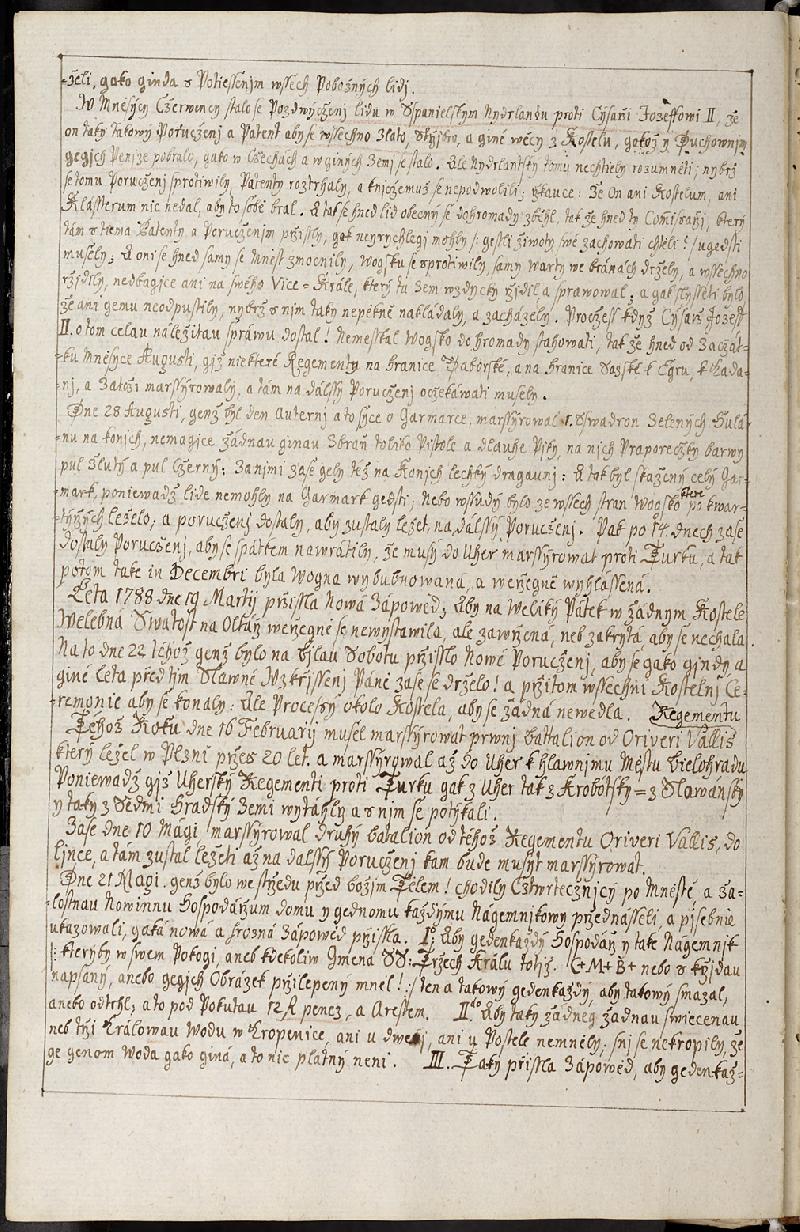 -želi, gako ginda s Potiessenjm wssech Pobožných lidj.
W Mněsýcy Czerwency stalo se Pozdwyženj lidu w Spanielským Nydrlandu proti Cýsaři Jozeffowi II, že
on taky takowý Poruczenj a Patent aby se wssechno Zlato, Střjbro, a giné wěcy z Kostelu, gakož y Duchownjm
gegich Penjze pobralo, gako w Cžechách a w giných Zemj se stalo. Ale Nydrlantsky tomu nechtiely rozumněti; nybrž
se tomu Poruczenj sprotiwily, Patenty roztrhaly, a k niczemuž se nepodwolili; rkauce: Že On ani Kostelum, ani
Klásserum nic nedal, aby to sobě bral. A tak se hned lid obecný se dohromady zběhl, tak že hned ty Comisaři, který
tám s tiema Patenty, a Poruczenjm přissly, gak neyrychlegj mohly /: gestli životy swé zachowati chtěli :/ ugedsti
musely; A oni se hned samy se Mněst zmocnily, Wogsku se sprotiwily, samy Warty we bránách držely, a wssechno
řjdily, nedbagice ani na swého Vice = Krále, který tu Zem wzdycky řjdil a sprawowal, a gak slysseti bylo,
že ani gemu neodpustily, nybrž s nim taky nepěkně nakladaly, a zacházely. Proczež když Cýsarž Jozeff
II. o tom celau náležitau spráwu dostal! Nemesskal Wogsko do hromady stahowati, tak že hned od Zaczát-
-ku Mněsýce Augusti, giž niekteré Regementy na hranice Thaborské, a na hranice Saské k Egru, k Kada-
-nj, a Žatczi marssýrowaly, a tám na dalssý Poruczenj oczekáwati musely.
Dne 28 Augusti, genž byl den Auternj a to sýce o Garmarce, marssýrowal 1. Sswadron Zelených Hulá-
-nu na konjch, nemagice žádnau ginau Zbraň toliko Pistole a dlauhe Piky, na nich Praporeczky barwy
pul žlutý a pul czerný: Za nimi zase gely též na Konjch lechký dragaunj: A tak byl skažený celý Gar-
-mark, poniewadž lide nemohly na Garmark gedsti; Nebo wssudy bylo ze wssech stran Wogsko které po kwar-
-týřých leželo, a poruczenj dostaly, aby zustaly ležet, na dalssý Poruczenj. Pak po 14. dnech zase
dostaly Poruczenj, aby se spátkem nawrátily, že musý do Uher marssýrowat proti Turku, a tak
potom také in Decembri byla Wogna wybubnowaná, a weřegně wyhlassená.
Léta 1788 dne 19 Martij přissla Nowá Zápowěd; Aby na Weliký Pátek w žádnym Kostele
Welebná Swátost na Oltáři weřegně se newystawila, ale zawřená, neb zakrytá aby se nechala
Na to dne 22 téhož genž bylo na Bjlau Sobotu přisslo Nowé Poruczenj, aby se gako gjndy a
giné léta před tim Slawné Wzkřjssenj Páně zase se drželo! a přitom wssechni Kostelnj Ce-
-remonie aby se konaly: Ale Processý okolo Kostela, aby se žádná newedla. Regementu
Téhož Roku dne 16 February musel marssýrowat prwnj battalion od Oriveri Vallis
který ležel w Plzni přzes 20 let, a marssýrowal až do Uher k hlawnjmu Městu Bielohradu
Poniewadž giž Uherský Regementi proti Turku gak z Uher tak z Krobotský = z Slawánský
y taky z Sedmi hradský Zemi wytáhly a s nim se potýkali.
Zase dne 10 Mági marssýrowal druhý batalion od téhož Regementu Oriveri Vallis, do
Ljnce, a tám zustal ležeti až na dalssý Poruczenj kam bude musýt marssýrowat.
Dne 21 Magi. genž bylo we středu před božjm Tělem! chodily Cžtwrtecžnjcy po Městě, a ža-
-lostnau Nowinnu Hospodářzum domu y gednomu každýmu Nágemnjkowy přednásseli, a pjsebnie
ukazowali, gaká nowá a hrozná Zápowěd přissla. I.o Aby gedenkaždý hospodář y také Nágemnjk
/: kteryby w swem Pokogi, aneb kdekoliw Jména SS: Tržech Králu totiž. C+M+B+ nebo s křjdau
napsaný, anebo gegich Obrázek přilepený mněl! :/ ten a takowý gedenkaždý, aby takowý smazal,
anebo odtrhl; a to pod Pokutau 12 R penez, a Arestem. II.o Aby taky žádneg žádnau swiecenau
neb tři Králowau Wodu w Kropenice, ani u dweřj, ani u Postele nemněly; snj se nekropily, že
ge genom Woda gako giná, a to nic platný neni. III. Taky přissla Zápowěd, aby gedenkaž-